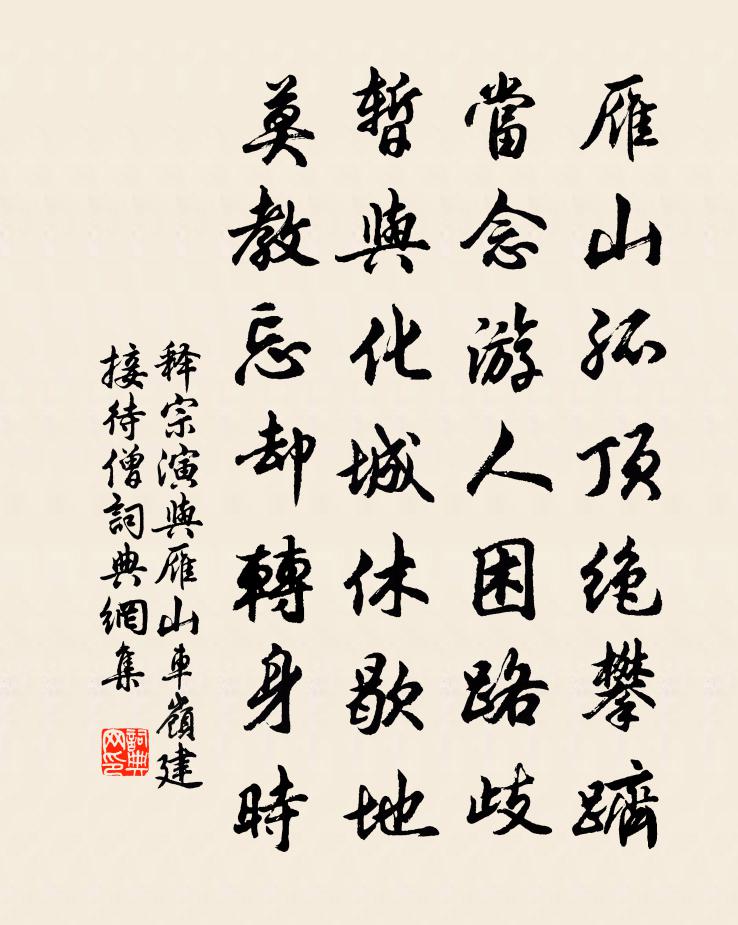 雁山孤頂絶攀躋
當念游人困路歧
暫與化城休歇地
莫教忘却轉身時
释宗演與雁山車嶺建
接待僧詞典網集
詞典网印